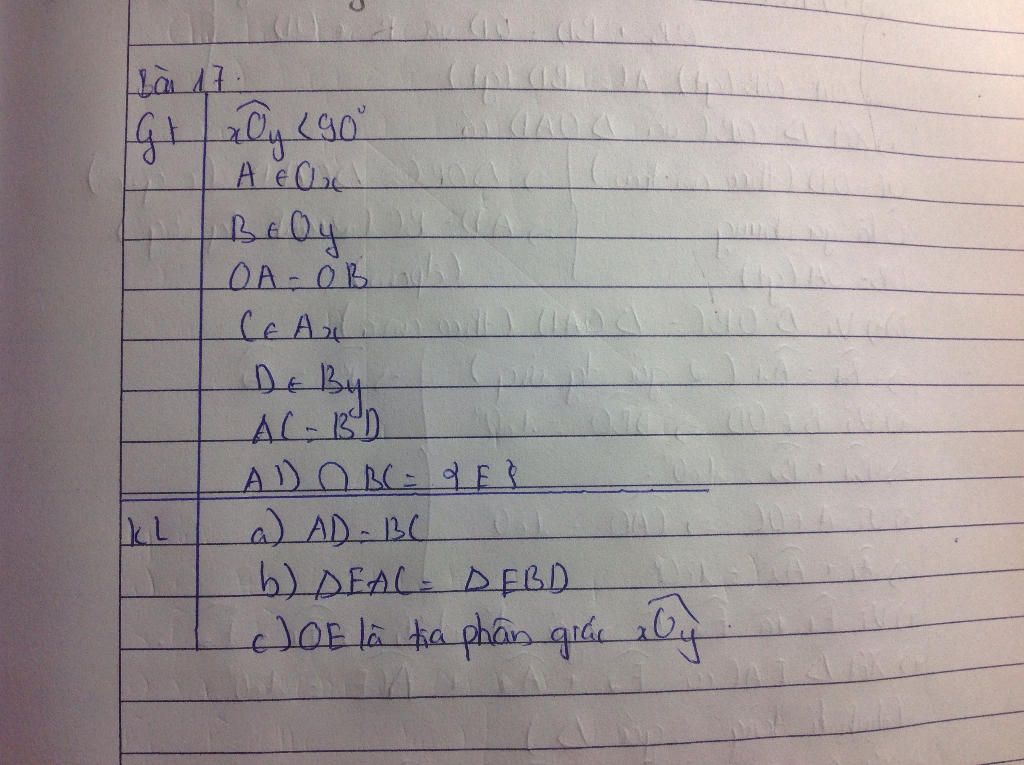 Bài 17.
Gt xÔy < 90°
A ∈ Ox
B ∈ Oy
OA = OB
C ∈ Ax
D ∈ By
AC = BD
AD ∩ BC = {E}
KL a) AD = BC
b) ΔEAC = ΔEBD
c) OE là tia phân giác xÔy.